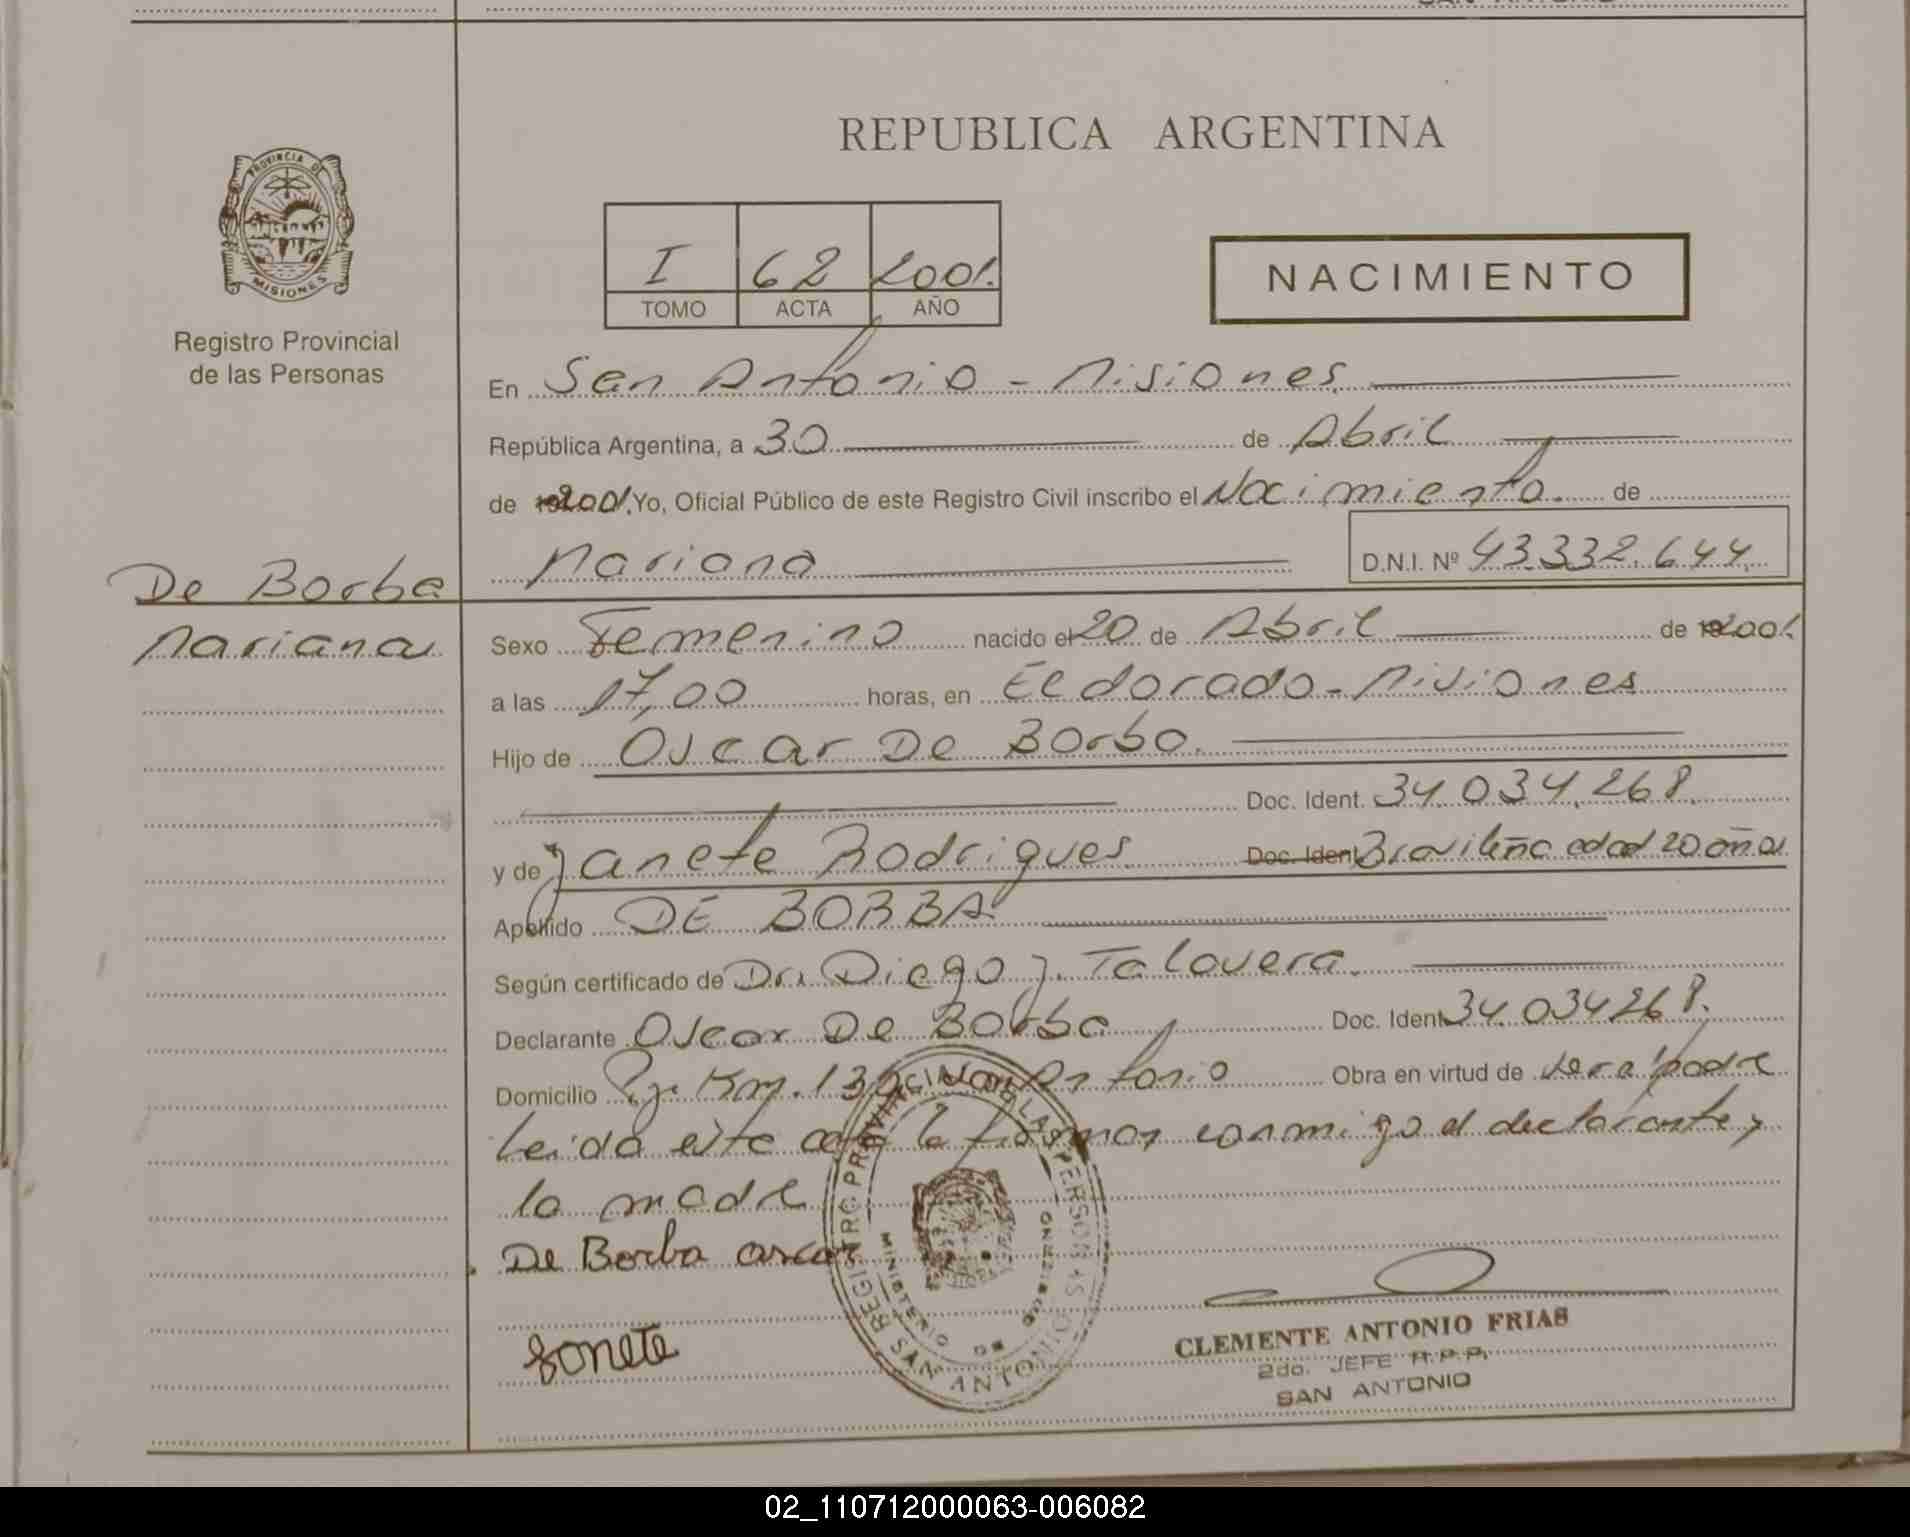 SAN ANTONIO
PROVINCIA DE
MISIONES
Registro Provincial
de las Personas
REPUBLICA ARGENTINA
I 62 2001.
TOMO ACTA AÑO
NACIMIENTO
En San Antonio - Misiones
República Argentina, a 30 de Abril
de 2001. Yo, Oficial Público de este Registro Civil inscribo el Nacimiento. de
Mariana D.N.I. Nº 43.332.644.
De Borba
Mariana
Sexo Femenino nacido el 20 de Abril de 2001.
a las 17,00 horas, en Eldorado - Misiones
Hijo de Oscar De Borba.
Doc. Ident. 34.034.268.
y de Janete Rodrigues Doc. Ident. Brasileña edad 20 años
Apellido DE BORBA
Según certificado de Dr. Diego J. Talavera.
Declarante Oscar De Borba Doc. Ident. 34.034268.
Domicilio Pje. Km. 130 San Antonio Obra en virtud de ser el padre
Leida este acta la firman conmigo el declarante y
la madre
De Borba oscar
Jonete
REGISTRO PROVINCIAL DE LAS PERSONAS
MINISTERIO DE GOBIERNO
SAN ANTONIO
CLEMENTE ANTONIO FRIAS
2do. JEFE R.P.P.
SAN ANTONIO
02_110712000063-006082